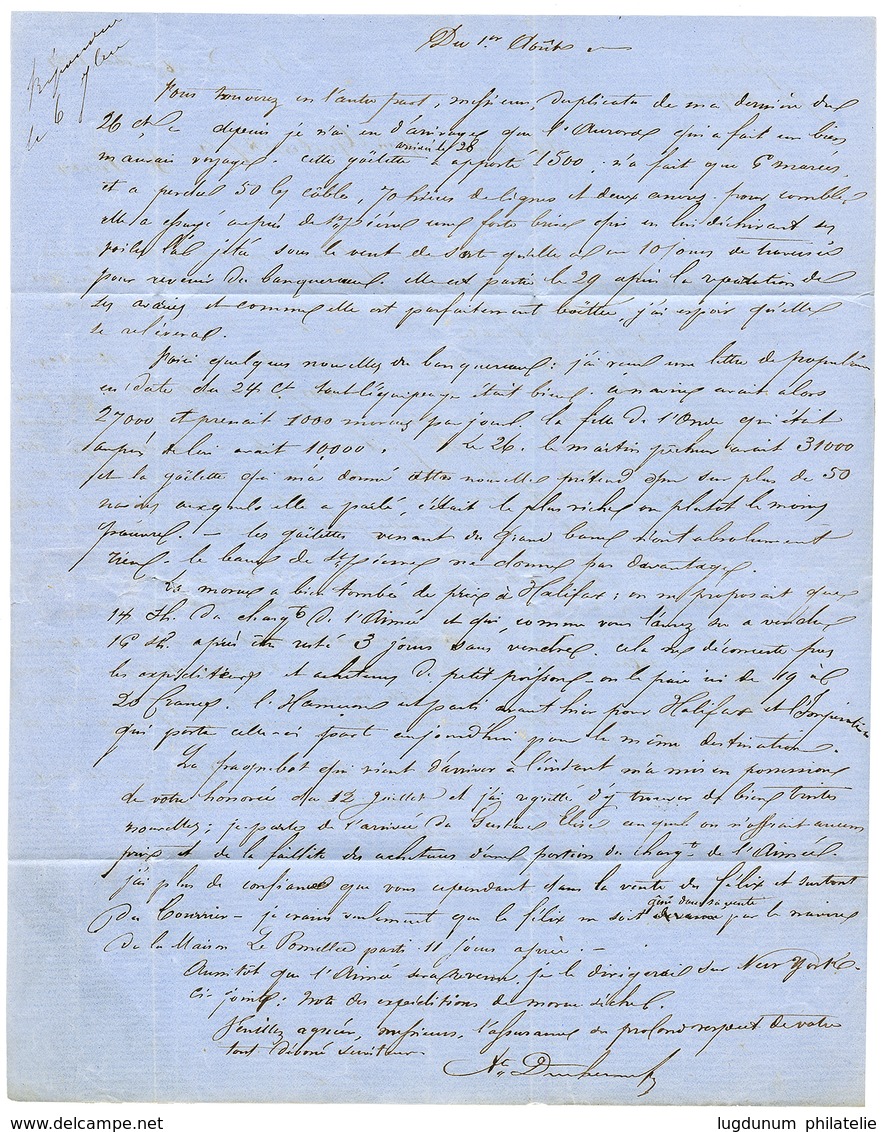 Du 1er Août
Répondu
le 6 7bre
Vous trouverez en l'autre part, messieurs, duplicata de ma dernière du
26 ct depuis je n'ai eu d'arrivages que l'Aurora qui a fait un bien
mauvais voyage. cette goëlette arrivée le 28 a apporté 1500, n'a fait que 6 marées
et a perdu 50 bes câbles, 70 pièces de lignes et deux ancres. pour comble
elle a essuyé auprès de St Pierre une forte brise qui en lui déchirant ses
voiles l'a jetée sous le vent de sorte qu'elle a eu 10 jours de traversée
pour revenir du banquereau. elle est partie le 29 après la réparation de
ses avaries et comme elle est parfaitement boëttée, j'ai espoir qu'elle
se relèvera.
Voici quelques nouvelles du banquereau : j'ai reçu une lettre de
en date du 24 ct tout l'équipage était bien. ce navire avait alors
27000 et prenait 1000 morues par jour. la fille de l'Onde qui était
auprès de lui avait 10,000. Le 26. le martin pêcheur avait 31000
et la goëlette qui m'a donné cette nouvelle prétend que sur plus de 50
navires auxquels elle a parlé, c'était le plus riche ou plutôt le moins
pauvre. — les goëlettes venant du grand banc n'ont absolument
rien. le banc de St Pierre ne donne pas davantage.
La morue a bien tombée de prix à Halifax : on me proposait que
14 sh. du chargt de l'Aimée et qui, comme vous l'aurez vu a vendu
16 sh. après être resté 3 jours sans vendre. cela ne déconcerte pas
les expéditeurs et acheteurs de petit poisson — on le paie ici de 19 à
20 francs. l' est parti avant hier pour Halifax et l'Impératrice
qui porte celle-ci part aujourd'hui pour la même destination.
Le paquebot qui vient d'arriver à l'instant m'a mis en possession
de votre honorée du 12 Juillet et j'ai regretté d'y trouver de bien tristes
nouvelles ; je parle de l'arrivée du Gustave Elise auquel on n'offrait aucun
prix et de la faillite des acheteurs d'une portion du chargt de l'Aimée.
j'ai plus de confiance que vous cependant dans la vente du félix et surtout
Du Courrier — je crains seulement que le félix ne soit gêné dans sa vente par le navire
de la Maison Le Pomellec parti 11 jours après. —
Aussitôt que l'Aimée sera revenu je le dirigerai sur New York —
ci-jointe : note des expéditions de morue sèche.
Veuillez agréer, messieurs, l'assurance du profond respect de votre
tout dévoué serviteur.
lugdunum philatelie
www.delcampe.net